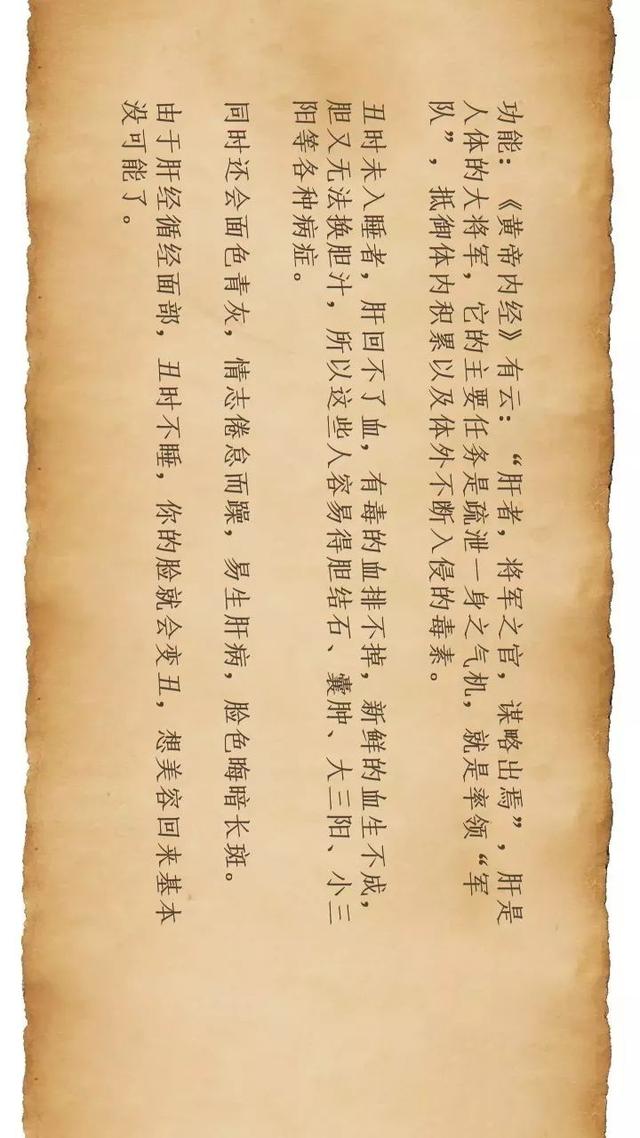 功能：《黄帝内经》有云：“肝者，将军之官，谋略出焉”，肝是
人体的大将军，它的主要任务是疏泄一身之气机，就是率领“军
队”，抵御体内积累以及体外不断入侵的毒素。
丑时未入睡者，肝回不了血，有毒的血排不掉，新鲜的血生不成，
胆又无法换胆汁，所以这些人容易得胆结石、囊肿、大三阳、小三
阳等各种病症。
同时还会面色青灰，情志倦怠而躁，易生肝病，脸色晦暗长斑。
由于肝经循经面部，丑时不睡，你的脸就会变丑，想美容回来基本
没可能了。